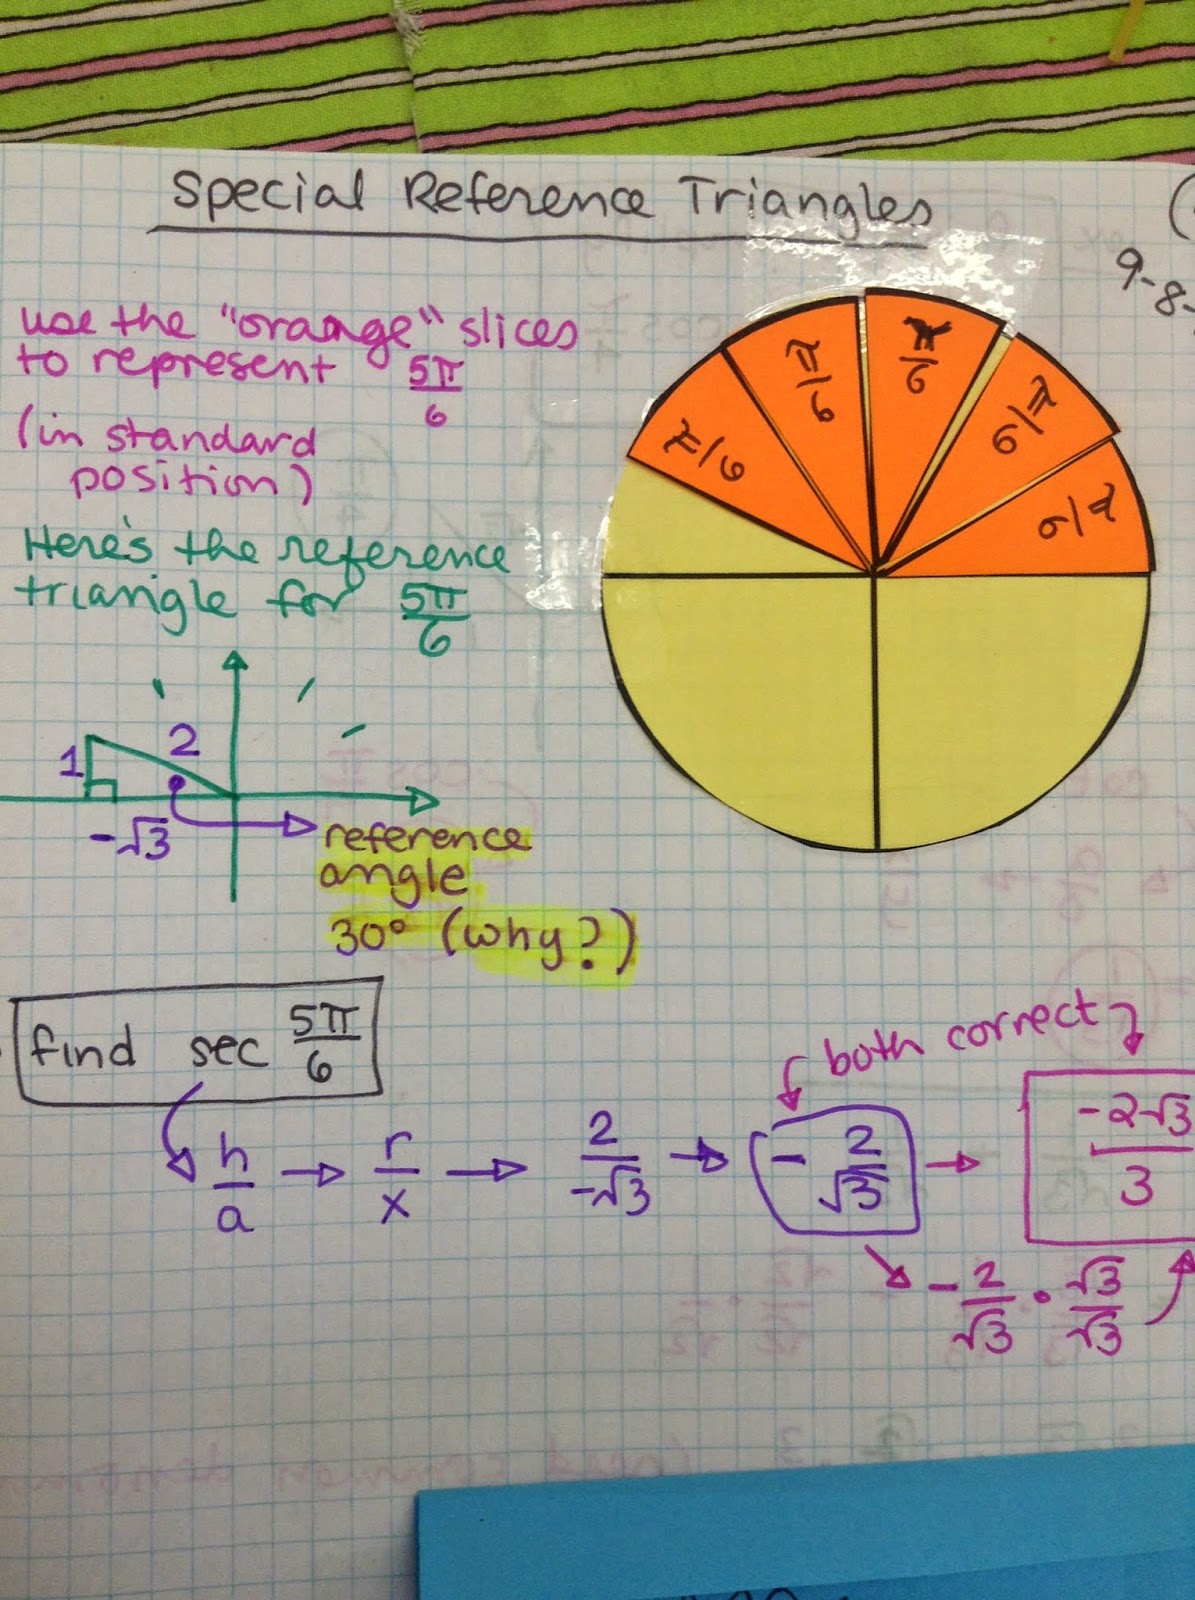 Special Reference Triangles
9-8-
use the "orange" slices
to represent 5π/6
(in standard
position)
π/6
π/6
π/6
π/6
π/6
Here's the reference
triangle for 5π/6
1
2
-√3
reference
angle
30° (why?)
find sec 5π/6
both correct
h/a → r/x → 2/-√3 → - 2/√3 → -2√3/3
- 2/√3 • √3/√3